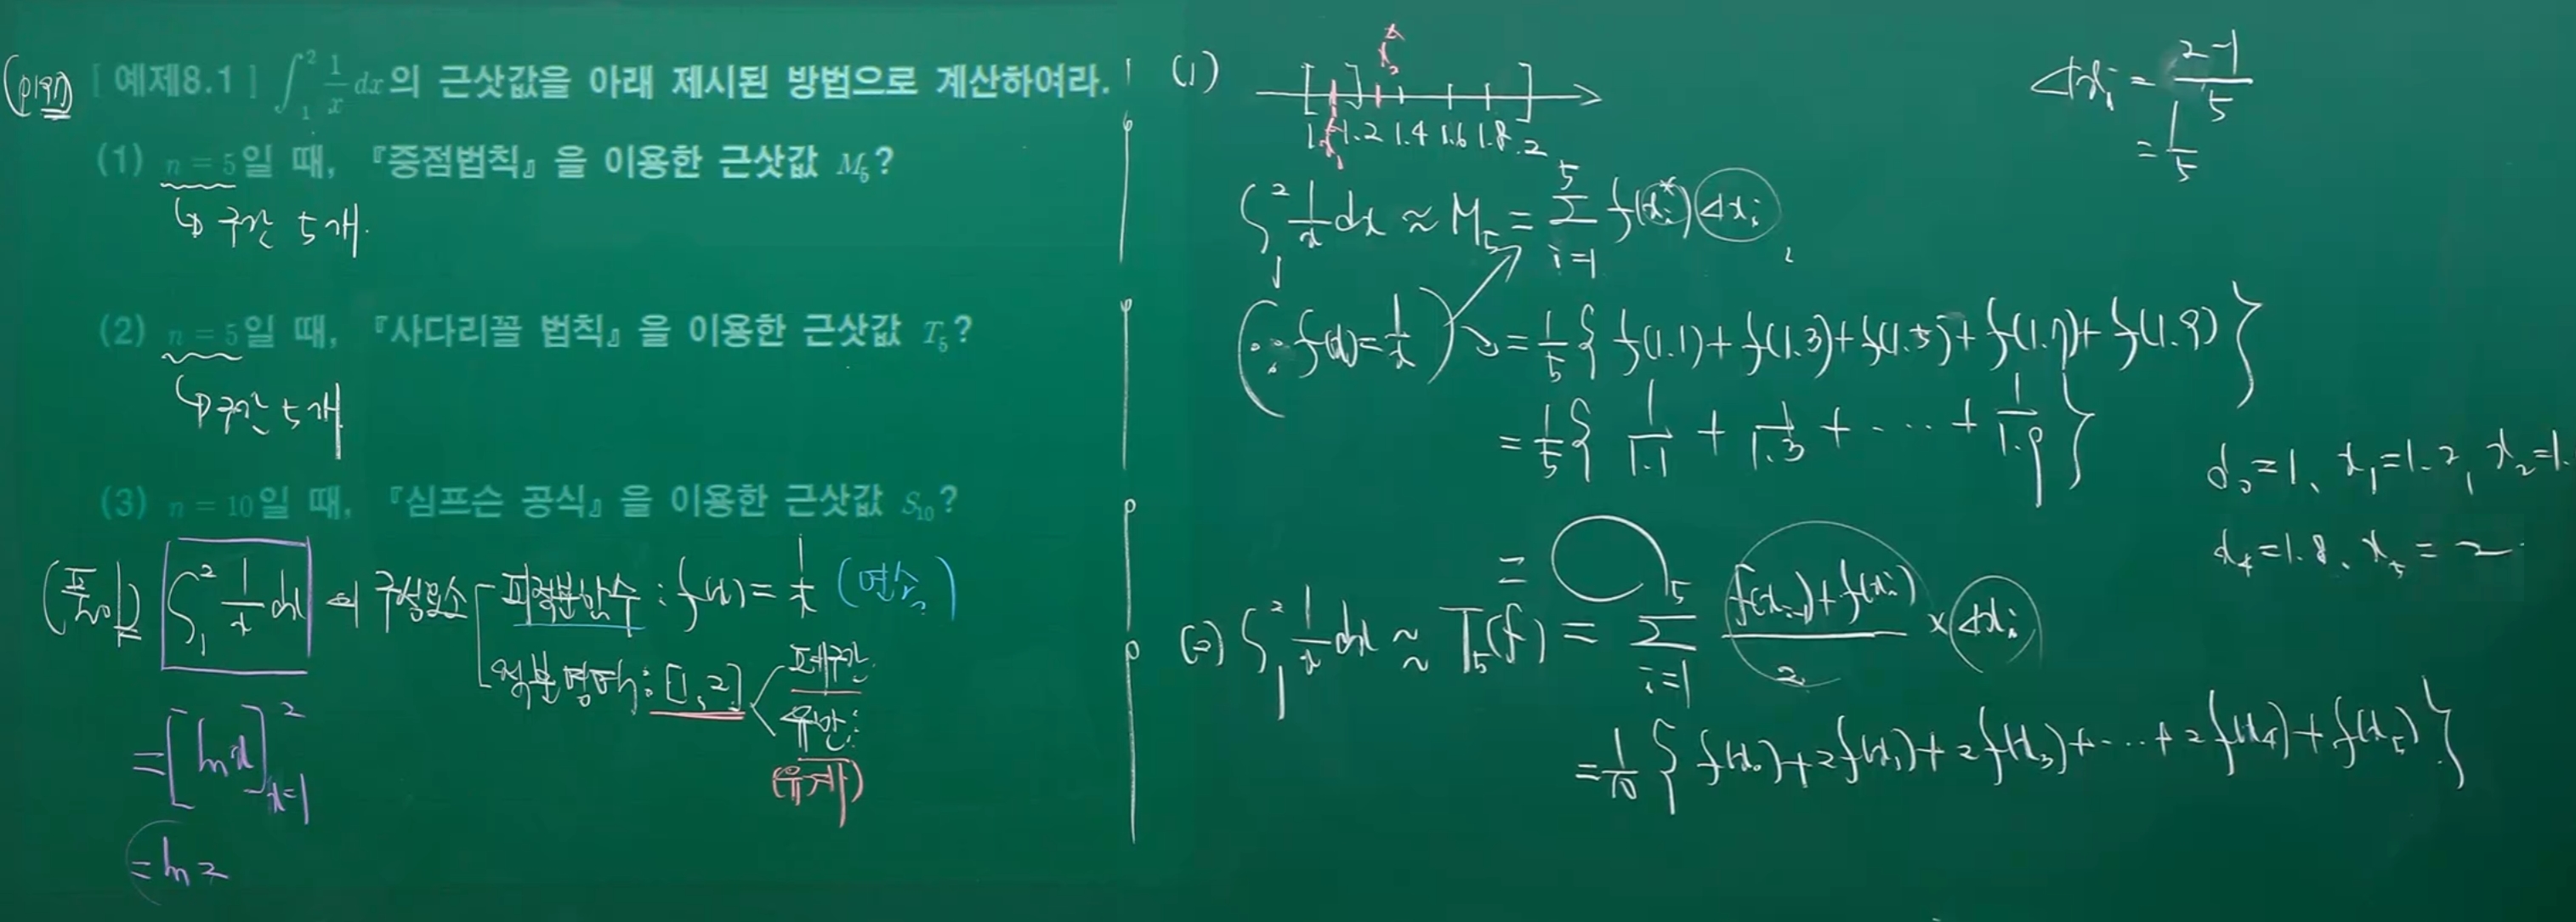 (p197) [예제8.1] ∫₁² 1/x dx의 근삿값을 아래 제시된 방법으로 계산하여라.
(1) n = 5일 때, 『중점법칙』을 이용한 근삿값 M₅?
↳ 구간 5개.
(2) n = 5일 때, 『사다리꼴 법칙』을 이용한 근삿값 T₅?
↳ 구간 5개
(3) n = 10일 때, 『심프슨 공식』을 이용한 근삿값 S₁₀?
(풀이) ∫₁² 1/x dx 의 구성요소 피적분함수 : f(x) = 1/x (연속)
적분영역 : [1, 2] 폐구간
유한
(유계)
= [ln x]²ₓ₌₁
= ln 2
(1)
x₂*
1. x₁* 1.2 1.4 1.6 1.8 2
Δxᵢ = (2-1)/5
= 1/5
∫₁² 1/x dx ≈ M₅ = Σᵢ₌₁⁵ f(xᵢ*) Δxᵢ
(∵ f(x) = 1/x) = 1/5 { f(1.1) + f(1.3) + f(1.5) + f(1.7) + f(1.9) }
= 1/5 { 1/1.1 + 1/1.3 + ··· + 1/1.9 }
=
x₀ = 1, x₁ = 1.2, x₂ = 1.
x₄ = 1.8, x₅ = 2
(2) ∫₁² 1/x dx ≈ T₅(f) = Σᵢ₌₁⁵ (f(xᵢ₋₁) + f(xᵢ))/2 × Δxᵢ
= 1/10 { f(x₀) + 2f(x₁) + 2f(x₃) + ··· + 2f(x₄) + f(x₅) }